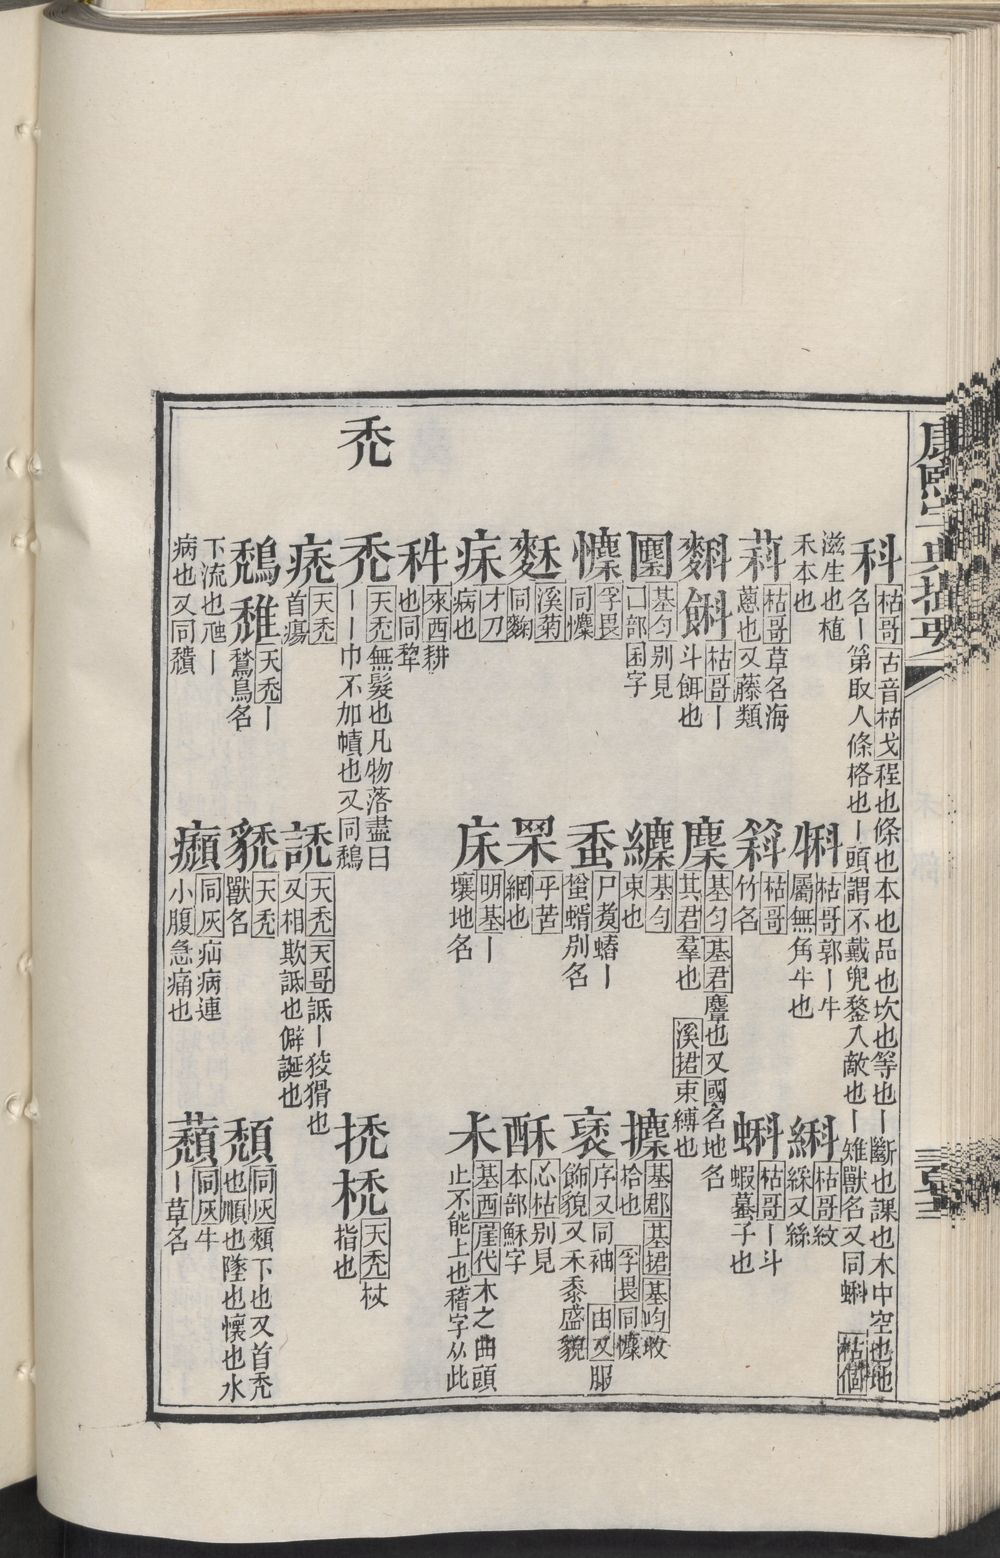 康熙字典撮要
科 枯哥 古音枯戈 程也條也本也品也坎也等也丨斷也課也木中空也地
名丨第取人條格也丨頭謂不戴兜鍪入敵也丨雉獸名又同蝌 枯個
滋生也植
禾本也
犐 枯哥 郭丨牛
屬無角牛也
綗 枯哥 紋
綵又絲
萪 枯哥 草名海
蔥也又藤類
䈖 枯哥
竹名
蝌 枯哥 丨斗
蝦蟇子也
枯哥 丨
斗餌也
麇 基勻 基君 麞也又國名地名
其君 羣也 溪捃 束縛也
基勻 别見
口部囷字
基勻
束也
攈 基郡 基捃 基昀 收
拾也 孚畏 同
孚畏
同
蚕 尸煑 蝽丨
蚩蝑别名
褎 序又 同袖 由又 服
飾貌又禾黍盛貌
溪菊
同麴
罙 乎苦
網也
酥 心枯 别見
本部穌字
才刀
病也
明基 丨
壤地名
禾 基西 崖代 木之曲頭
止不能上也稽字从此
來西 耕
也同犂
禿
禿 天禿 無髮也凡物落盡曰
丨丨巾不加幘也又同鵚
挩 梲 天禿 杖
指也
痜 天禿
首瘍
䛢 天禿 天哥 詆丨狡猾也
又相欺詆也僻誕也
鵚 天禿 丨
鶖鳥名
天禿
獸名
頹 同灰 頹下也又首禿
也順也墜也懷也水
下流也虺丨
病也又同穨
同灰 疝病連
小腹急痛也
蘈 同灰 牛
丨草名